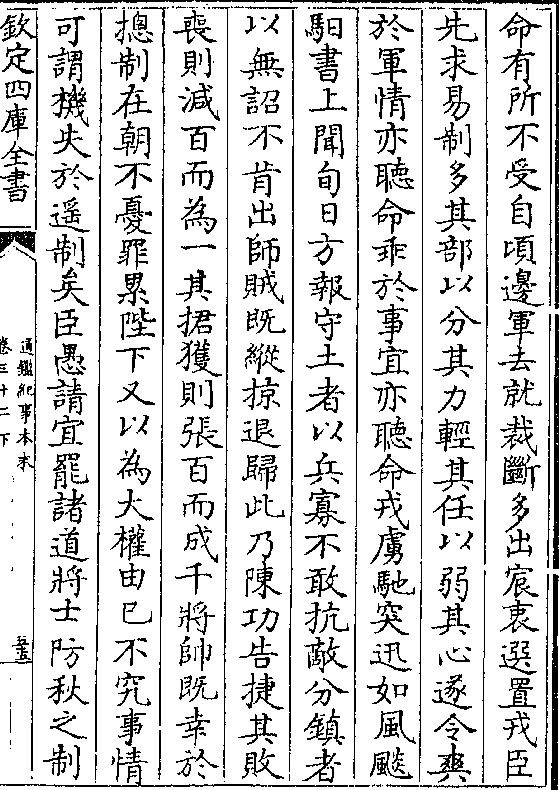 命有所不受自頃邊軍去就裁斷多出宸衷選置戎臣
先求易制多其部以分其力輕其任以弱其心遂令爽
於軍情亦聽命乖於事宜亦聽命戎虜馳突迅如風飈
馹書上聞旬日方報守土者以兵寡不敢抗敵分鎮者
以無詔不肯出師賊既縱掠退歸此乃陳功告捷其敗
喪則減百而為一其捃獲則張百而成千將帥既幸於
摠制在朝不憂罪累陛下又以為大權由已不究事情
可謂機失於遥制矣臣愚請宜罷諸道將士防秋之制
欽定四庫全書
通鑑紀事本末
卷三十二下